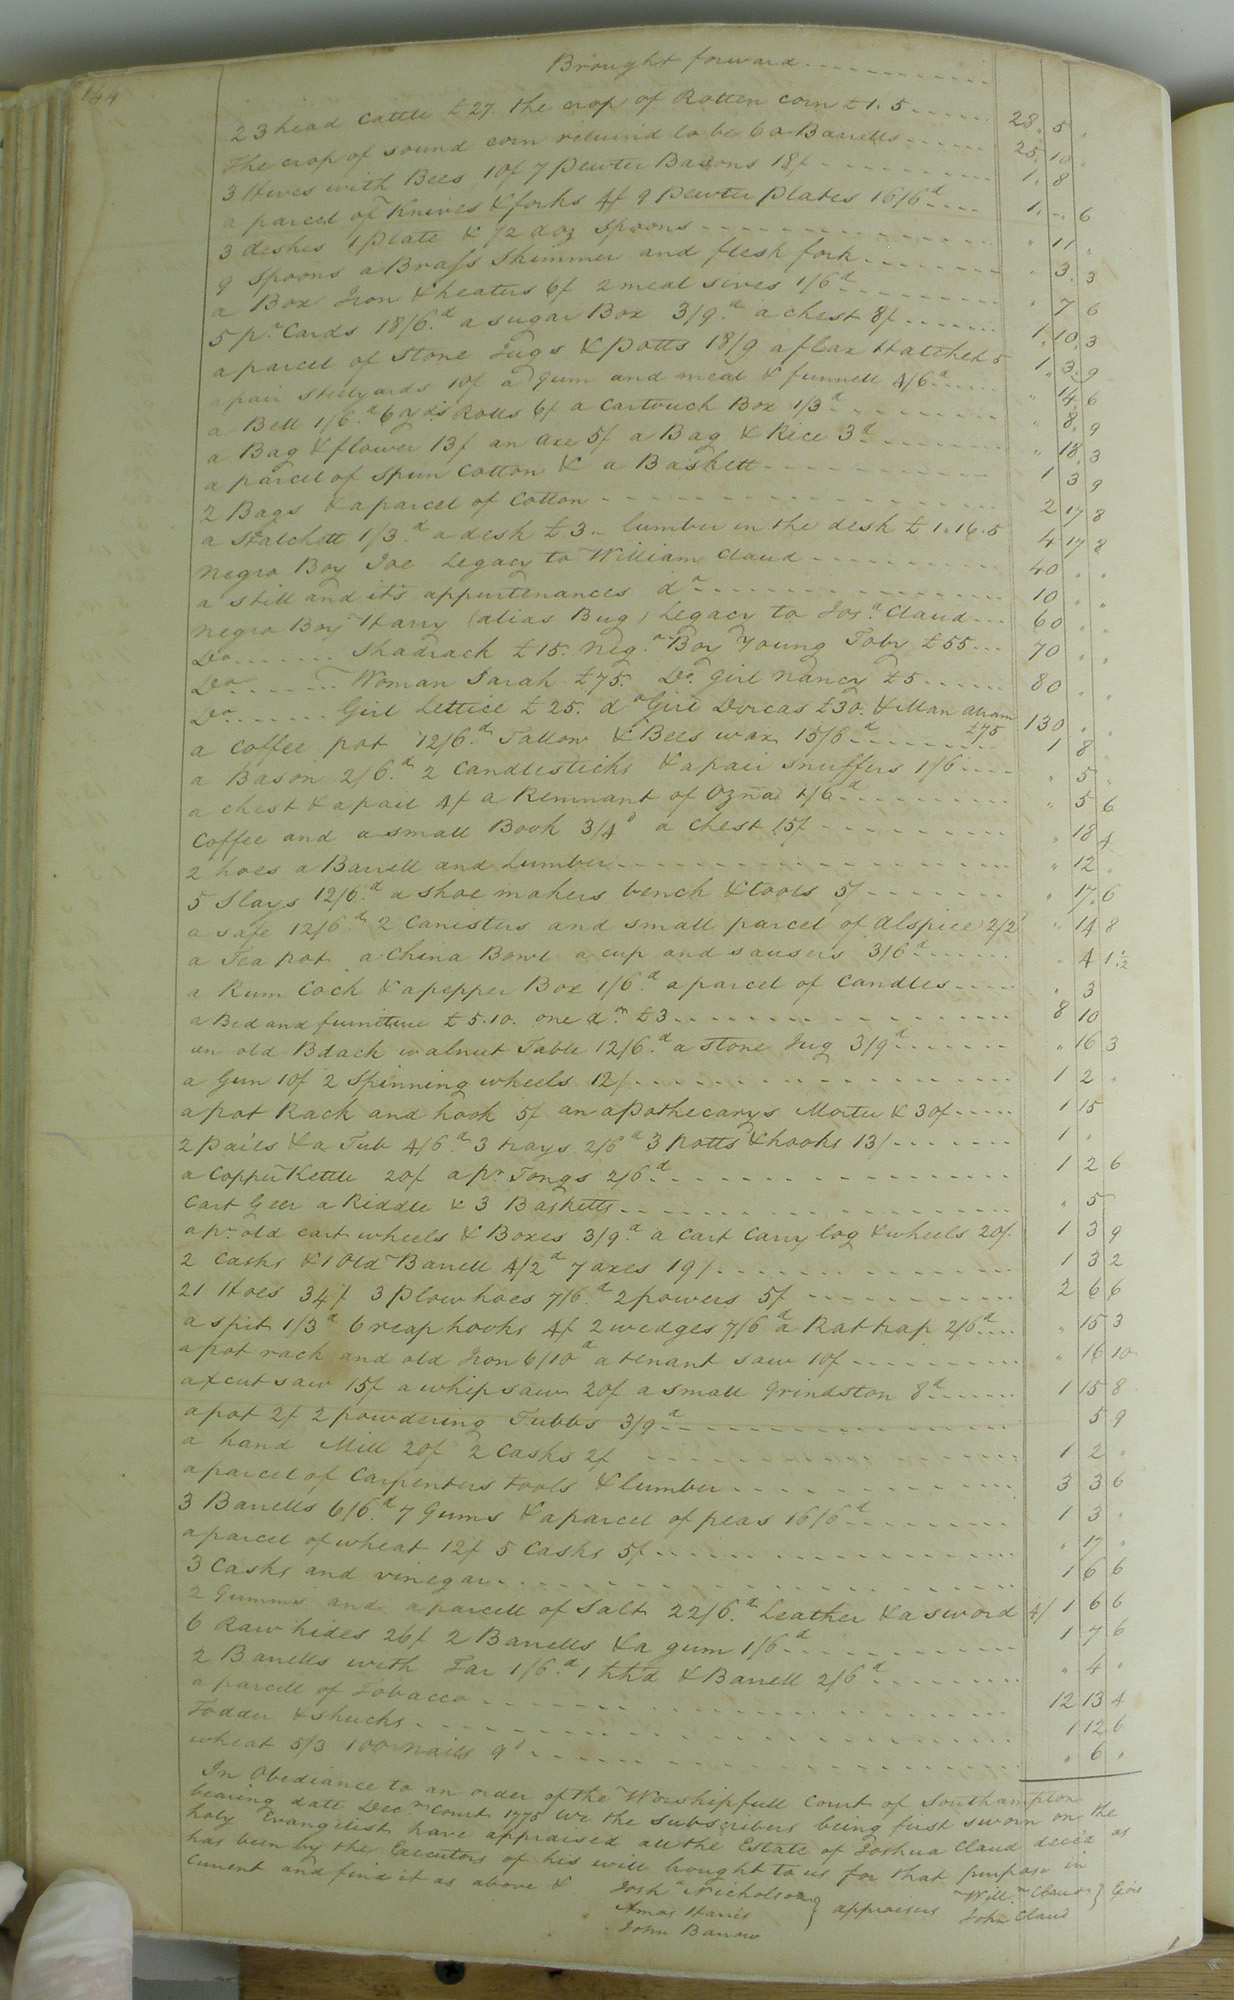 144
Brought forward
23 head Cattle £27. the crop of Rotten corn £1.5 28. 5 "
The crop of sound corn returnd to be 60 Barrells 25. 10 "
3 Hives with Bees 10/ 7 Pewter Basons 18/ 1. 8
a parcel of Knives & forks 4/ 9 Pewter Plates 16/6d 1. " 6
3 deshes 1 plate & 1/2 doz Spoons " 11 "
9 Spoons a Brass Skimmer and flesh fork " 3. 3
a Box Iron & heaters 6/ 2 meal sives 1/6d " 7 6
5 pr Cards 18/6d a sugar Box 3/9d a chest 8/ 1. 10. 3
a parcel of Stone Jugs & potts 18/9 a flax Hatchel 5 1 3. 9
a pair Stillyards 10/ a gum and meal & funnell 4/6d " 14 6
a Bell 1/6d 6 yds Rolls 6/ a Cartouch Box 1/3d " 8. 9
a Bag & flower 13/ an axe 5/ a Bag & Rice 3d " 18. 3
a parcel of spun Cotton & a Baskett 1 3 9
2 Bags & a parcel of Cotton 2 17 8
a Hatchett 1/3d a desk £3. lumber in the desk £1.16.5 4 17 8
Negro Boy Joe Legacy to William Claud 40 " "
a still and it's appurtenances do 10 " "
Negro Boy Harry (alias Bug) Legacy to Josa Claud 60 " "
Do Shadrach £15. Nego Boy Young Toby £55 70 " "
Do Woman Sarah £75. Do girl Nancy £5 80 " "
Do Girl Lettice £25. do Girl Dorcas £30. & Man abram £75 130 " "
a Coffee pot 12/6d Tallow & Bees wax 15/6d 1 8 "
a Bason 2/6d 2 Candlesticks & a pair snuffers 1/6 " 5 "
a chest & a pail 4/ a Remnant of Ozna 1/6d " 5 6
Coffee and a small Book 3/4d a chest 15/ " 18 4
2 hoes a Barrell and Lumber " 12 "
5 Slays 12/6d a shoe makers bench & tools 5/ " 17. 6
a safe 12/6d 2 Canisters and small parcel of alspice 2/2 " 14 8
a Tea pot a China Bowl a cup and sausers 3/6d " 4 1 1/2
a Rum Cock & a pepper Box 1/6d a parcel of Candles " 3
a Bed and furniture £5.10. one do £3 8 10
an old Bdack walnut Table 12/6d a stone Jug 3/9d " 16 3
a Gun 10/ 2 Spinning wheels 12/ 1 2 "
a pot Rack and hook 5/ an apothecarys Morter & 30/ 1 15
2 pails & a Tub 4/6d 3 trays 2/6d 3 potts & hooks 13/ 1 "
a Copper Kettle 20/ a pr Tongs 2/6d 1 2 6
Cart Geer a Riddle & 3 Basketts " 5
a pr old cart wheels & Boxes 3/9d a Cart Carry log & wheels 20/ 1 3 9
2 Casks & 1 Old Barrell 4/2d 7 axes 19/ 1 3 2
21 Hoes 34/ 3 plow hoes 7/6d 2 powers 5/ 2 6 6
a spit 1/3d 6 reap hooks 4/ 2 wedges 7/6d a Rat trap 2/6d " 15 3
a pot rack and old Iron 6/10d a tenant saw 10/ " 16 10
a x cut saw 15/ a whip saw 20/ a small Grindston 8d 1 15 8
a pot 2/ 2 powdering Tubbs 3/9d 5 9
a hand Mill 20/ 2 Casks 2/ 1 2 "
a parcel of Carpenters tools & lumber 3 3 6
3 Barrells 6/6d 7 Gums & a parcel of peas 16/6d 1 3 "
a parcel of wheat 12/ 5 Casks 5/ " 17 "
3 Casks and vinegar 1 6 6
2 Gumms and a parcell of Salt 22/6d Leather & a sword 4/ 1 6 6
6 Raw hides 26/ 2 Barrells & a gum 1/6d 1 7 6
2 Barells with Tar 1/6d 1 hhd & Barrell 2/6d " 4 "
a parcell of Tobacco 12 13 4
Fodder & shucks 1 12 6
wheat 5/3 100 nails 9d " 6 "
In Obediance to an order of the Worshipfull Court of Southampton
bearing date Decm Court 1775 we the Subscribers being first sworn on the
holy Evangelist have appraised all the Estate of Joshua Claud decd as
has been by the Executors of his will brought to us for that purpose in
Current and find it as above &
Josha Nicholson
Amos Harris } appraisers
John Barrow
Willm Claud
John Claud }